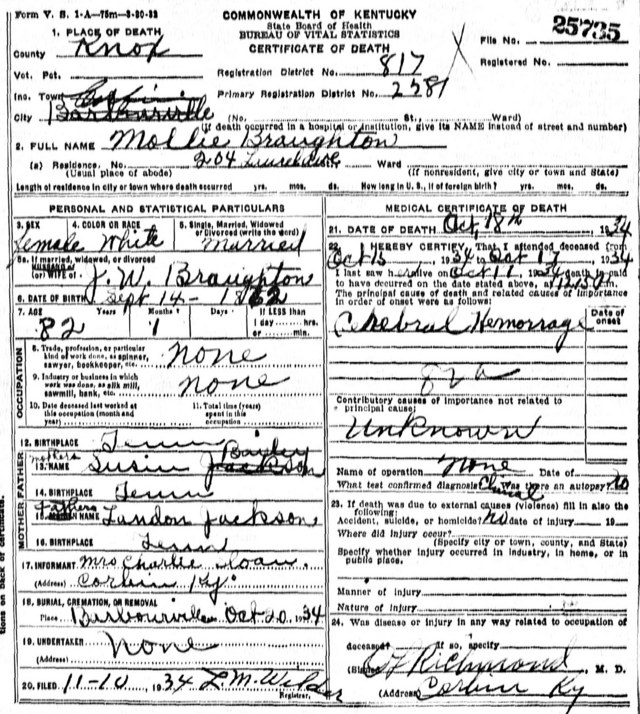 Form V. S. 1-A—75m—3-30-32
COMMONWEALTH OF KENTUCKY
State Board of Health
BUREAU OF VITAL STATISTICS
CERTIFICATE OF DEATH
File No. 25735
Registered No.
1. PLACE OF DEATH
County Knox
Registration District No. 817
Vot. Pct.
Primary Registration District No. 2381
Inc. Town Corbin
City Barbourville (No. St., Ward)
(If death occurred in a hospital or institution, give its NAME instead of street and number)
2. FULL NAME Mollie Braughton
(a) Residence. No. 204 Ward
(Usual place of abode) (If nonresident, give city or town and State)
Length of residence in city or town where death occurred yrs. mos. ds. How long in U. S., if of foreign birth? yrs. mos. ds.
PERSONAL AND STATISTICAL PARTICULARS
3. SEX 4. COLOR OR RACE 5. Single, Married, Widowed
or Divorced (write the word)
female White Married
5a. If married, widowed, or divorced
HUSBAND of
(or) WIFE of J. W. Braughton
6. DATE OF BIRTH Sept 14 - 1852
7. AGE Years Months Days If LESS than
1 day hrs.
or min.
82 1
OCCUPATION
8. Trade, profession, or particular
kind of work done, as spinner,
sawyer, bookkeeper, etc. none
9. Industry or business in which
work was done, as silk mill,
sawmill, bank, etc. none
10. Date deceased last worked at
this occupation (month and
year)
11. Total time (years)
spent in this
occupation
12. BIRTHPLACE Tenn
MOTHER FATHER
mothers Bailey
13. NAME Susin Jackson
14. BIRTHPLACE Tenn
Fathers
15. NAME Landon Jackson
16. BIRTHPLACE Tenn
17. INFORMANT Mrs Charlie Sloan
(Address) Corbin Ky
18. BURIAL, CREMATION, OR REMOVAL
Place Barbourville Oct 20 1934
19. UNDERTAKER none
(Address)
20. FILED 11-10, 1934 L. M. Wilder
Registrar.
MEDICAL CERTIFICATE OF DEATH
21. DATE OF DEATH Oct 18th 1934
22. I HEREBY CERTIFY, That I attended deceased from
Oct 15 1934 to Oct 17, 1934
I last saw her alive on Oct 17 1934 death is said
to have occurred on the date stated above, at
The principal cause of death and related causes of importance
in order of onset were as follows:
Date of
onset
Cehebral Hemorrage
82a
Contributory causes of importance not related to
principal cause:
Unknown
Name of operation none Date of
What test confirmed diagnosis Clinical Was there an autopsy? No
23. If death was due to external causes (violence) fill in also the
following:
Accident, suicide, or homicide? No date of injury 19
Where did injury occur?
(Specify city or town, county, and State)
Specify whether injury occurred in industry, in home, or in
public place.
Manner of injury
Nature of injury
24. Was disease or injury in any way related to occupation of
deceased? If so, specify
(Signed) Richmond, M. D.
(Address) Corbin Ky
tions on back of certificate.